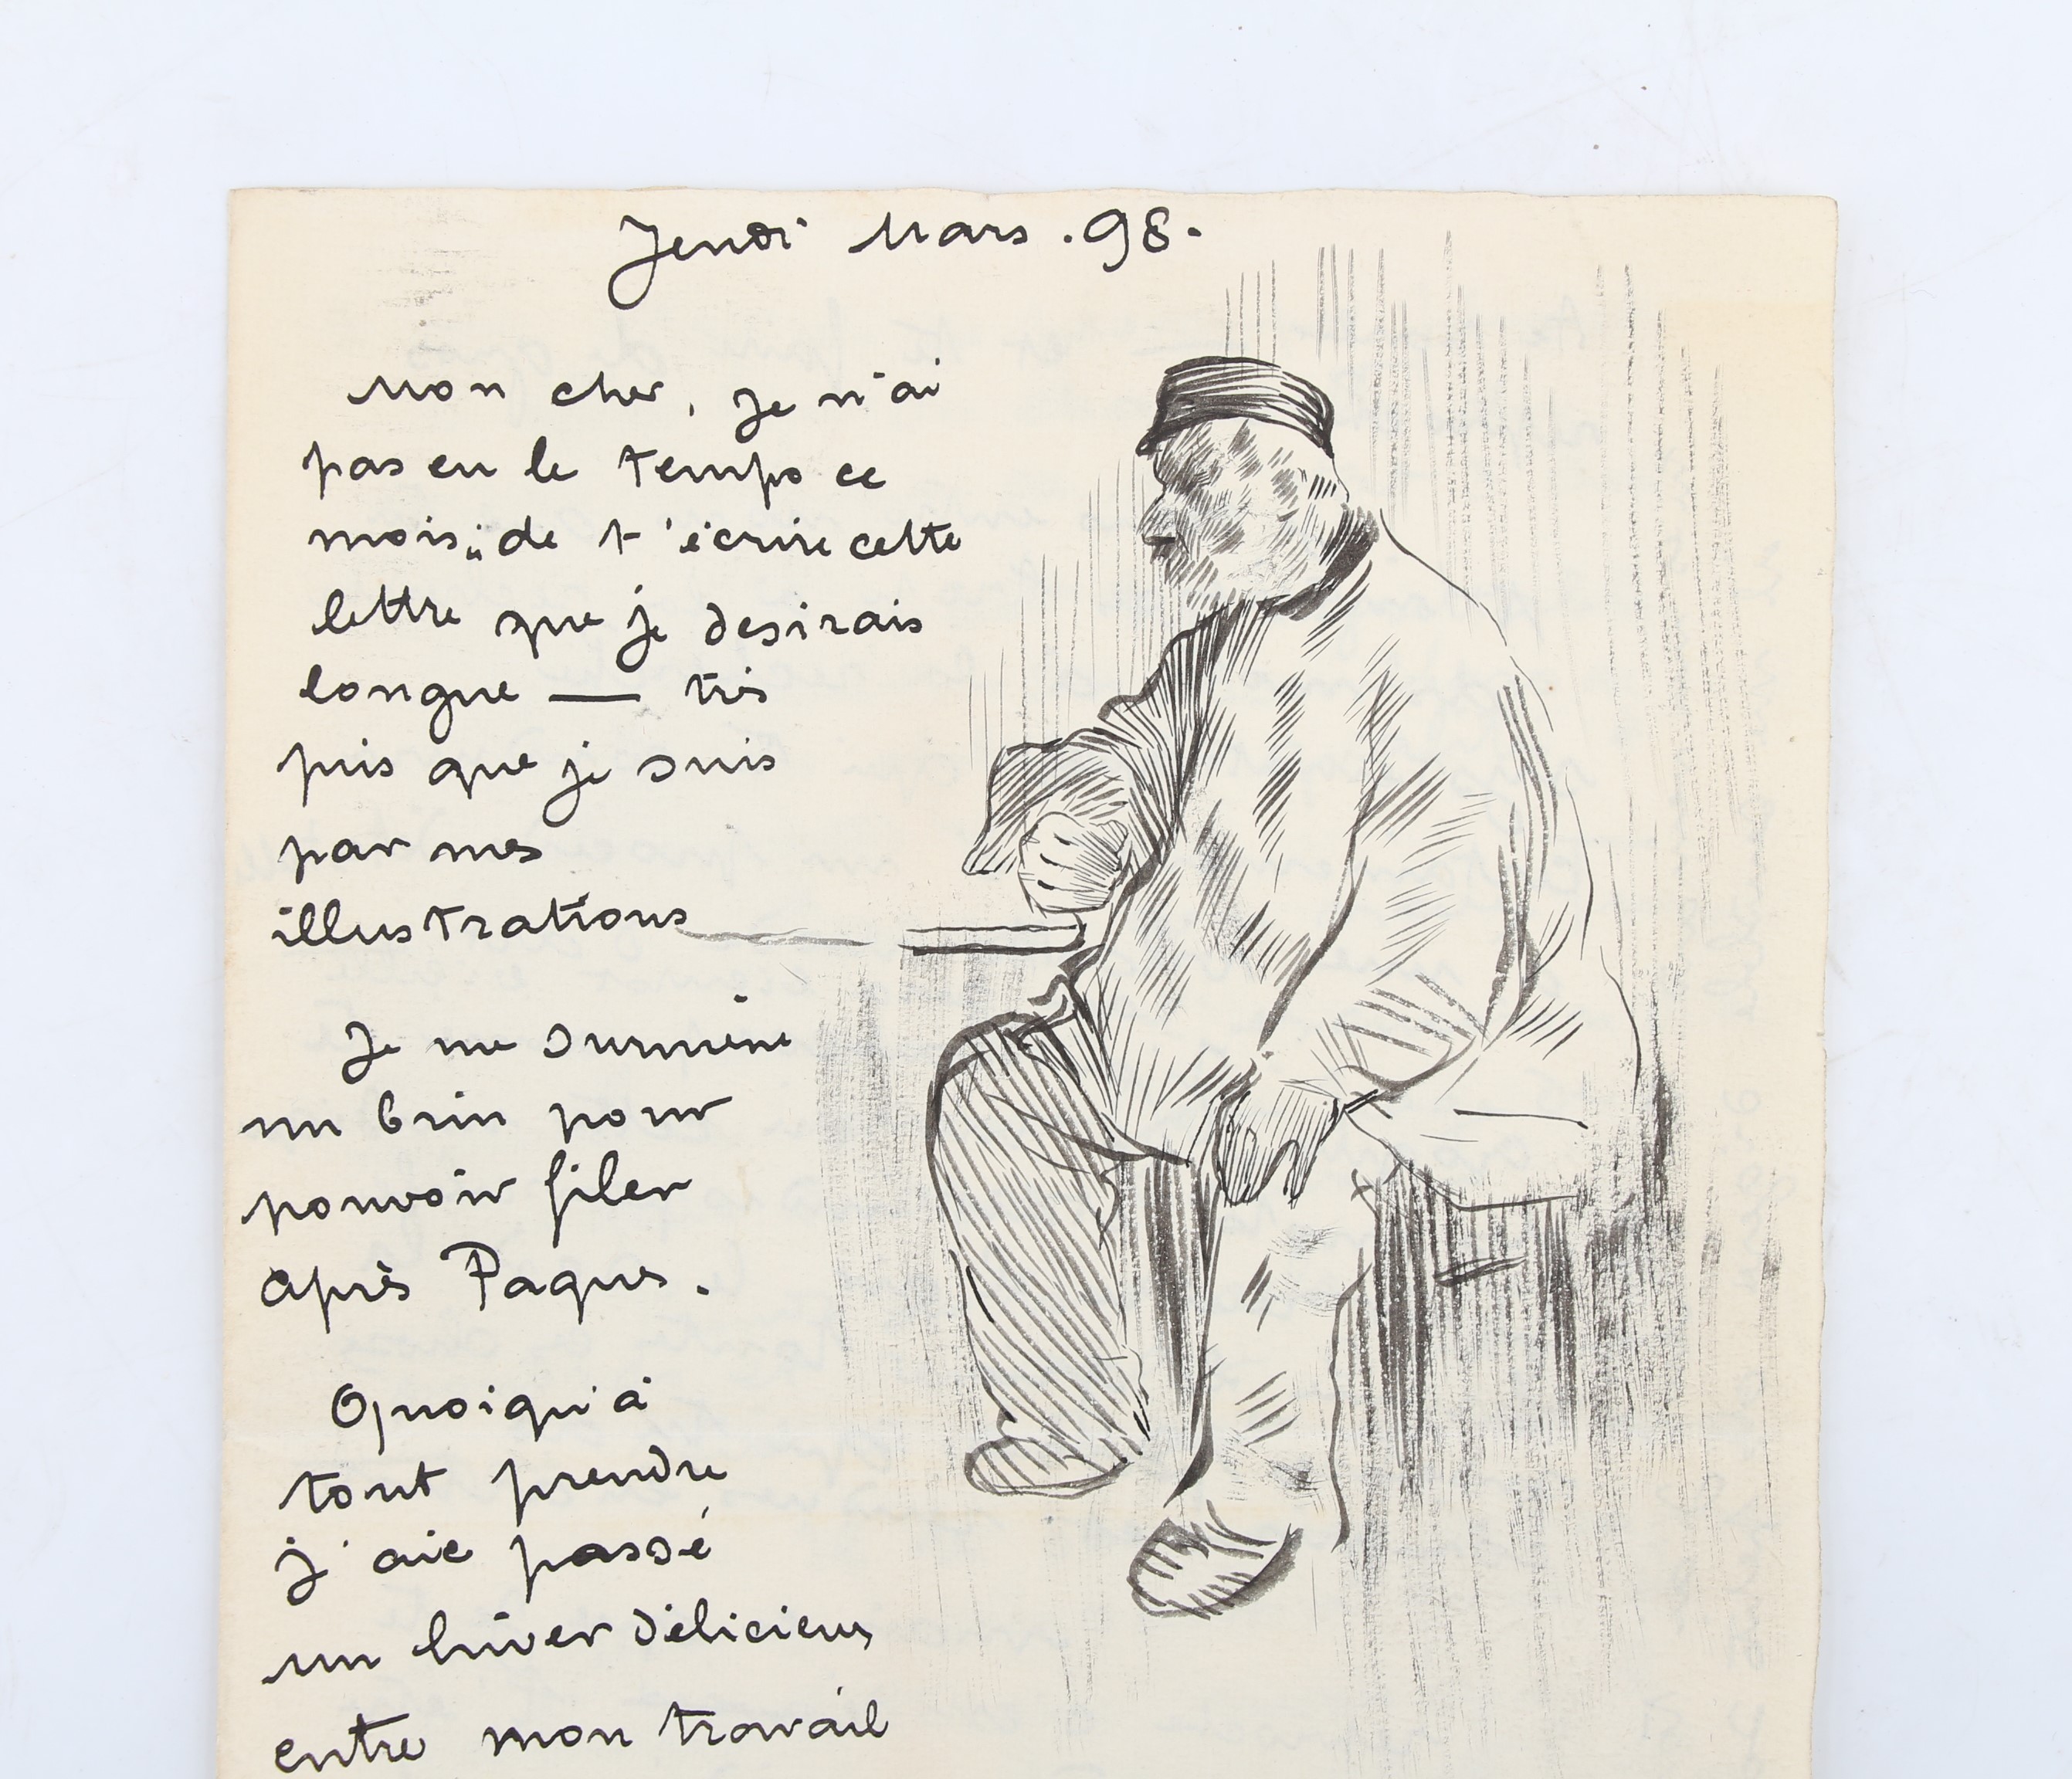 Jeudi Mars .98.
Mon cher, je n'ai
pas eu le temps ce
mois, de t'écrire cette
lettre que je desirais
longue — très
puis que je suis
par mes
illustrations
Je me surmène
un brin pour
pouvoir filer
après Paques.
Quoiqu'à
tout prendre
j'aie passé
un hiver délicieux
entre mon travail